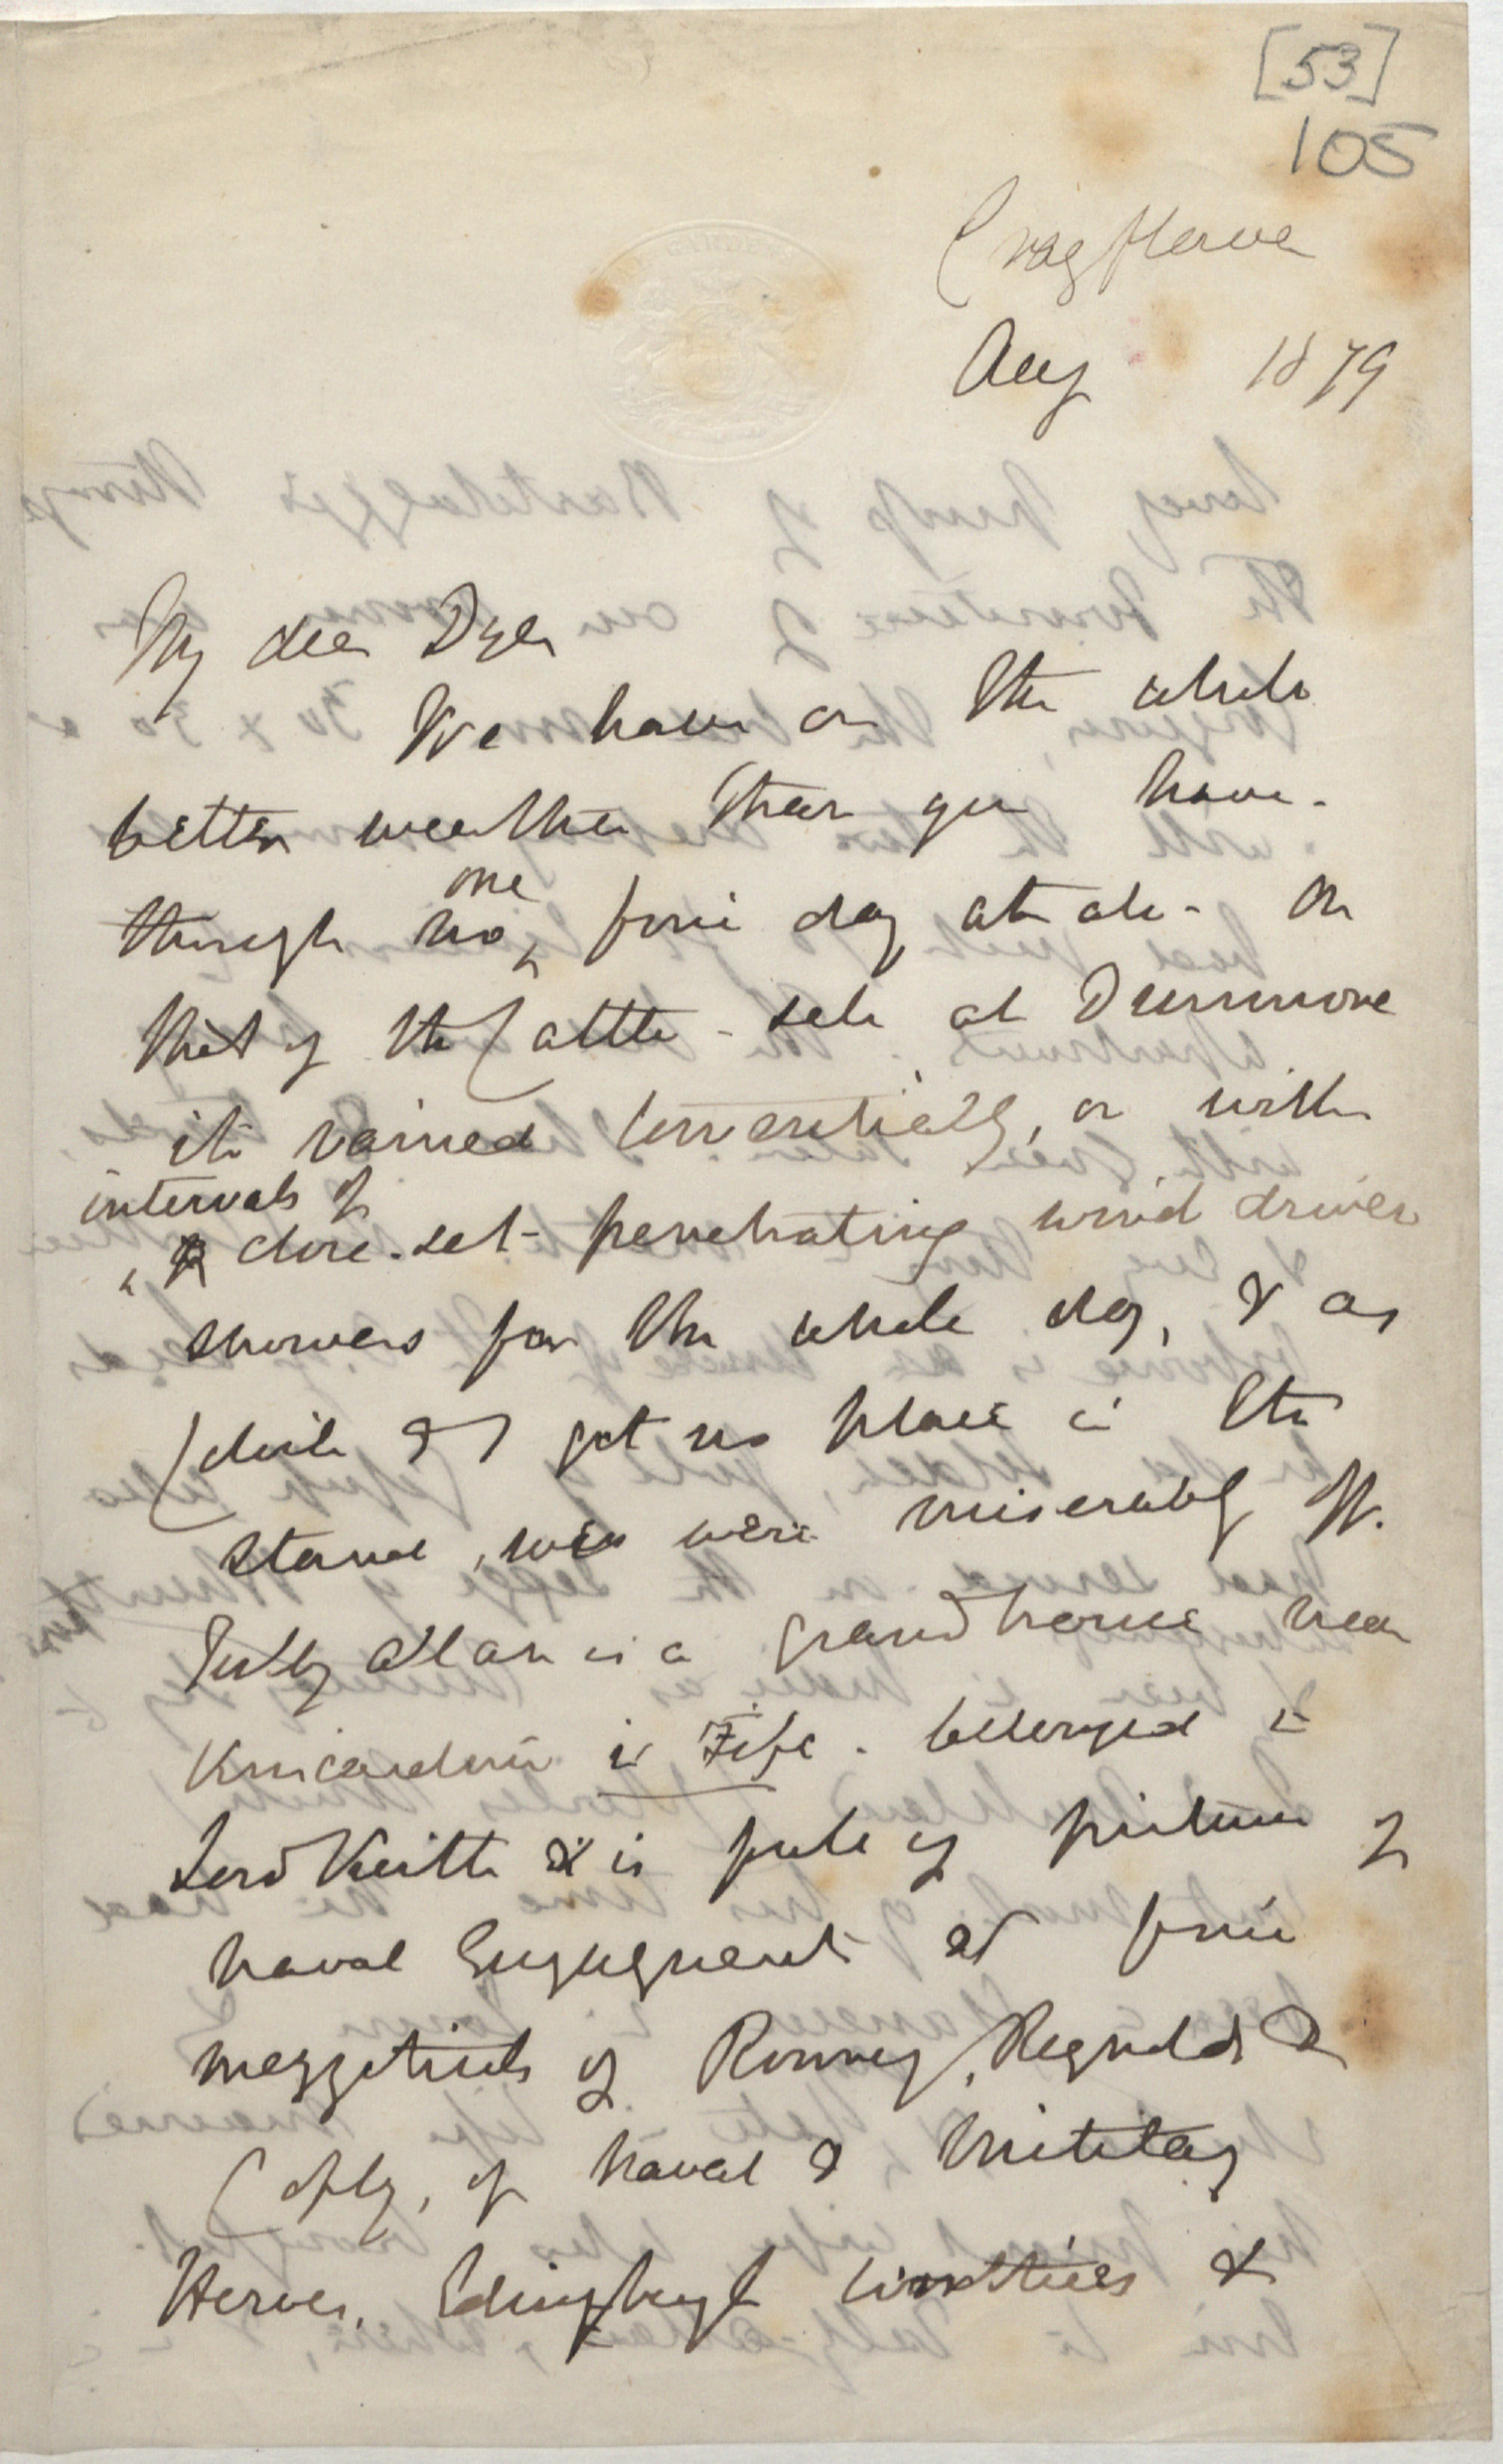 [53]
105
Cragflower
Aug 1879
My dear Dyer
We have on the whole
better weather than you have -
though no one fine day at all - On
that of the Cattle-sale at Drummore
it rained torrentially, or with
intervals of
close-set penetrating wind driven
showers for the whole day, & as
& I got no place in the
stand, we were miserably off.
Tullyallan is a grand house near
Kincardine in Fife - belonged to
Lord Keith & is full of pictures of
naval Engagement & fine
mezzotints of Romney, Reynolds &
Copley, of naval & military
Heroes, Edinburgh &